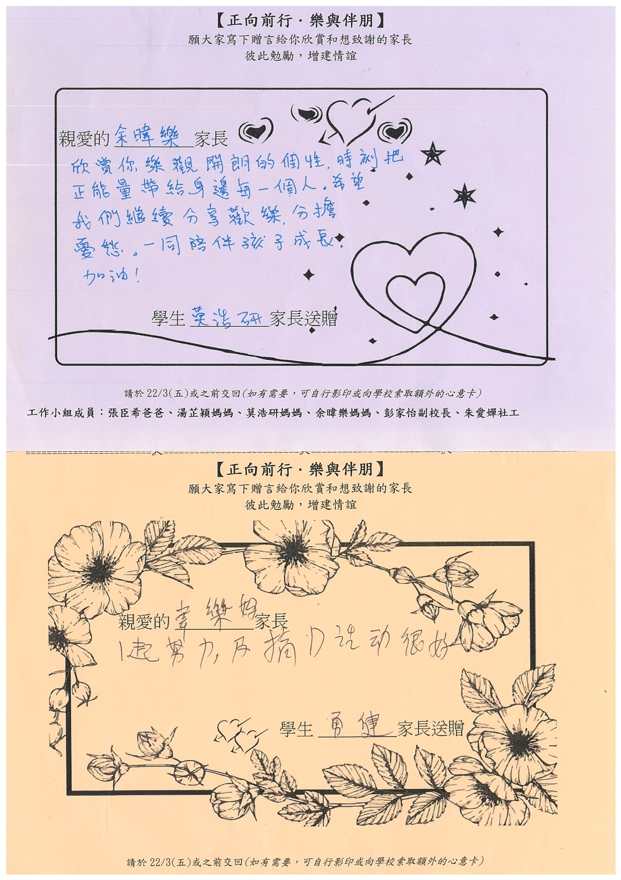 【正向前行．樂與伴朋】
願大家寫下贈言給你欣賞和想致謝的家長
彼此勉勵，增建情誼
親愛的 余暐樂 家長
欣賞你樂觀開朗的個性，時刻把
正能量帶給身邊每一個人。希望
我們繼續分享歡樂，分擔
憂愁。一同陪伴孩子成長。
加油！
學生 莫浩研 家長送贈
請於 22/3(五)或之前交回(如有需要，可自行影印或向學校索取額外的心意卡)
工作小組成員：張臣希爸爸、湯芷穎媽媽、莫浩研媽媽、余暐樂媽媽、彭家怡副校長、朱愛嬋社工
【正向前行．樂與伴朋】
願大家寫下贈言給你欣賞和想致謝的家長
彼此勉勵，增建情誼
親愛的 樂 家長
努力，及 活动很好
學生 家長送贈
請於 22/3(五)或之前交回(如有需要，可自行影印或向學校索取額外的心意卡)